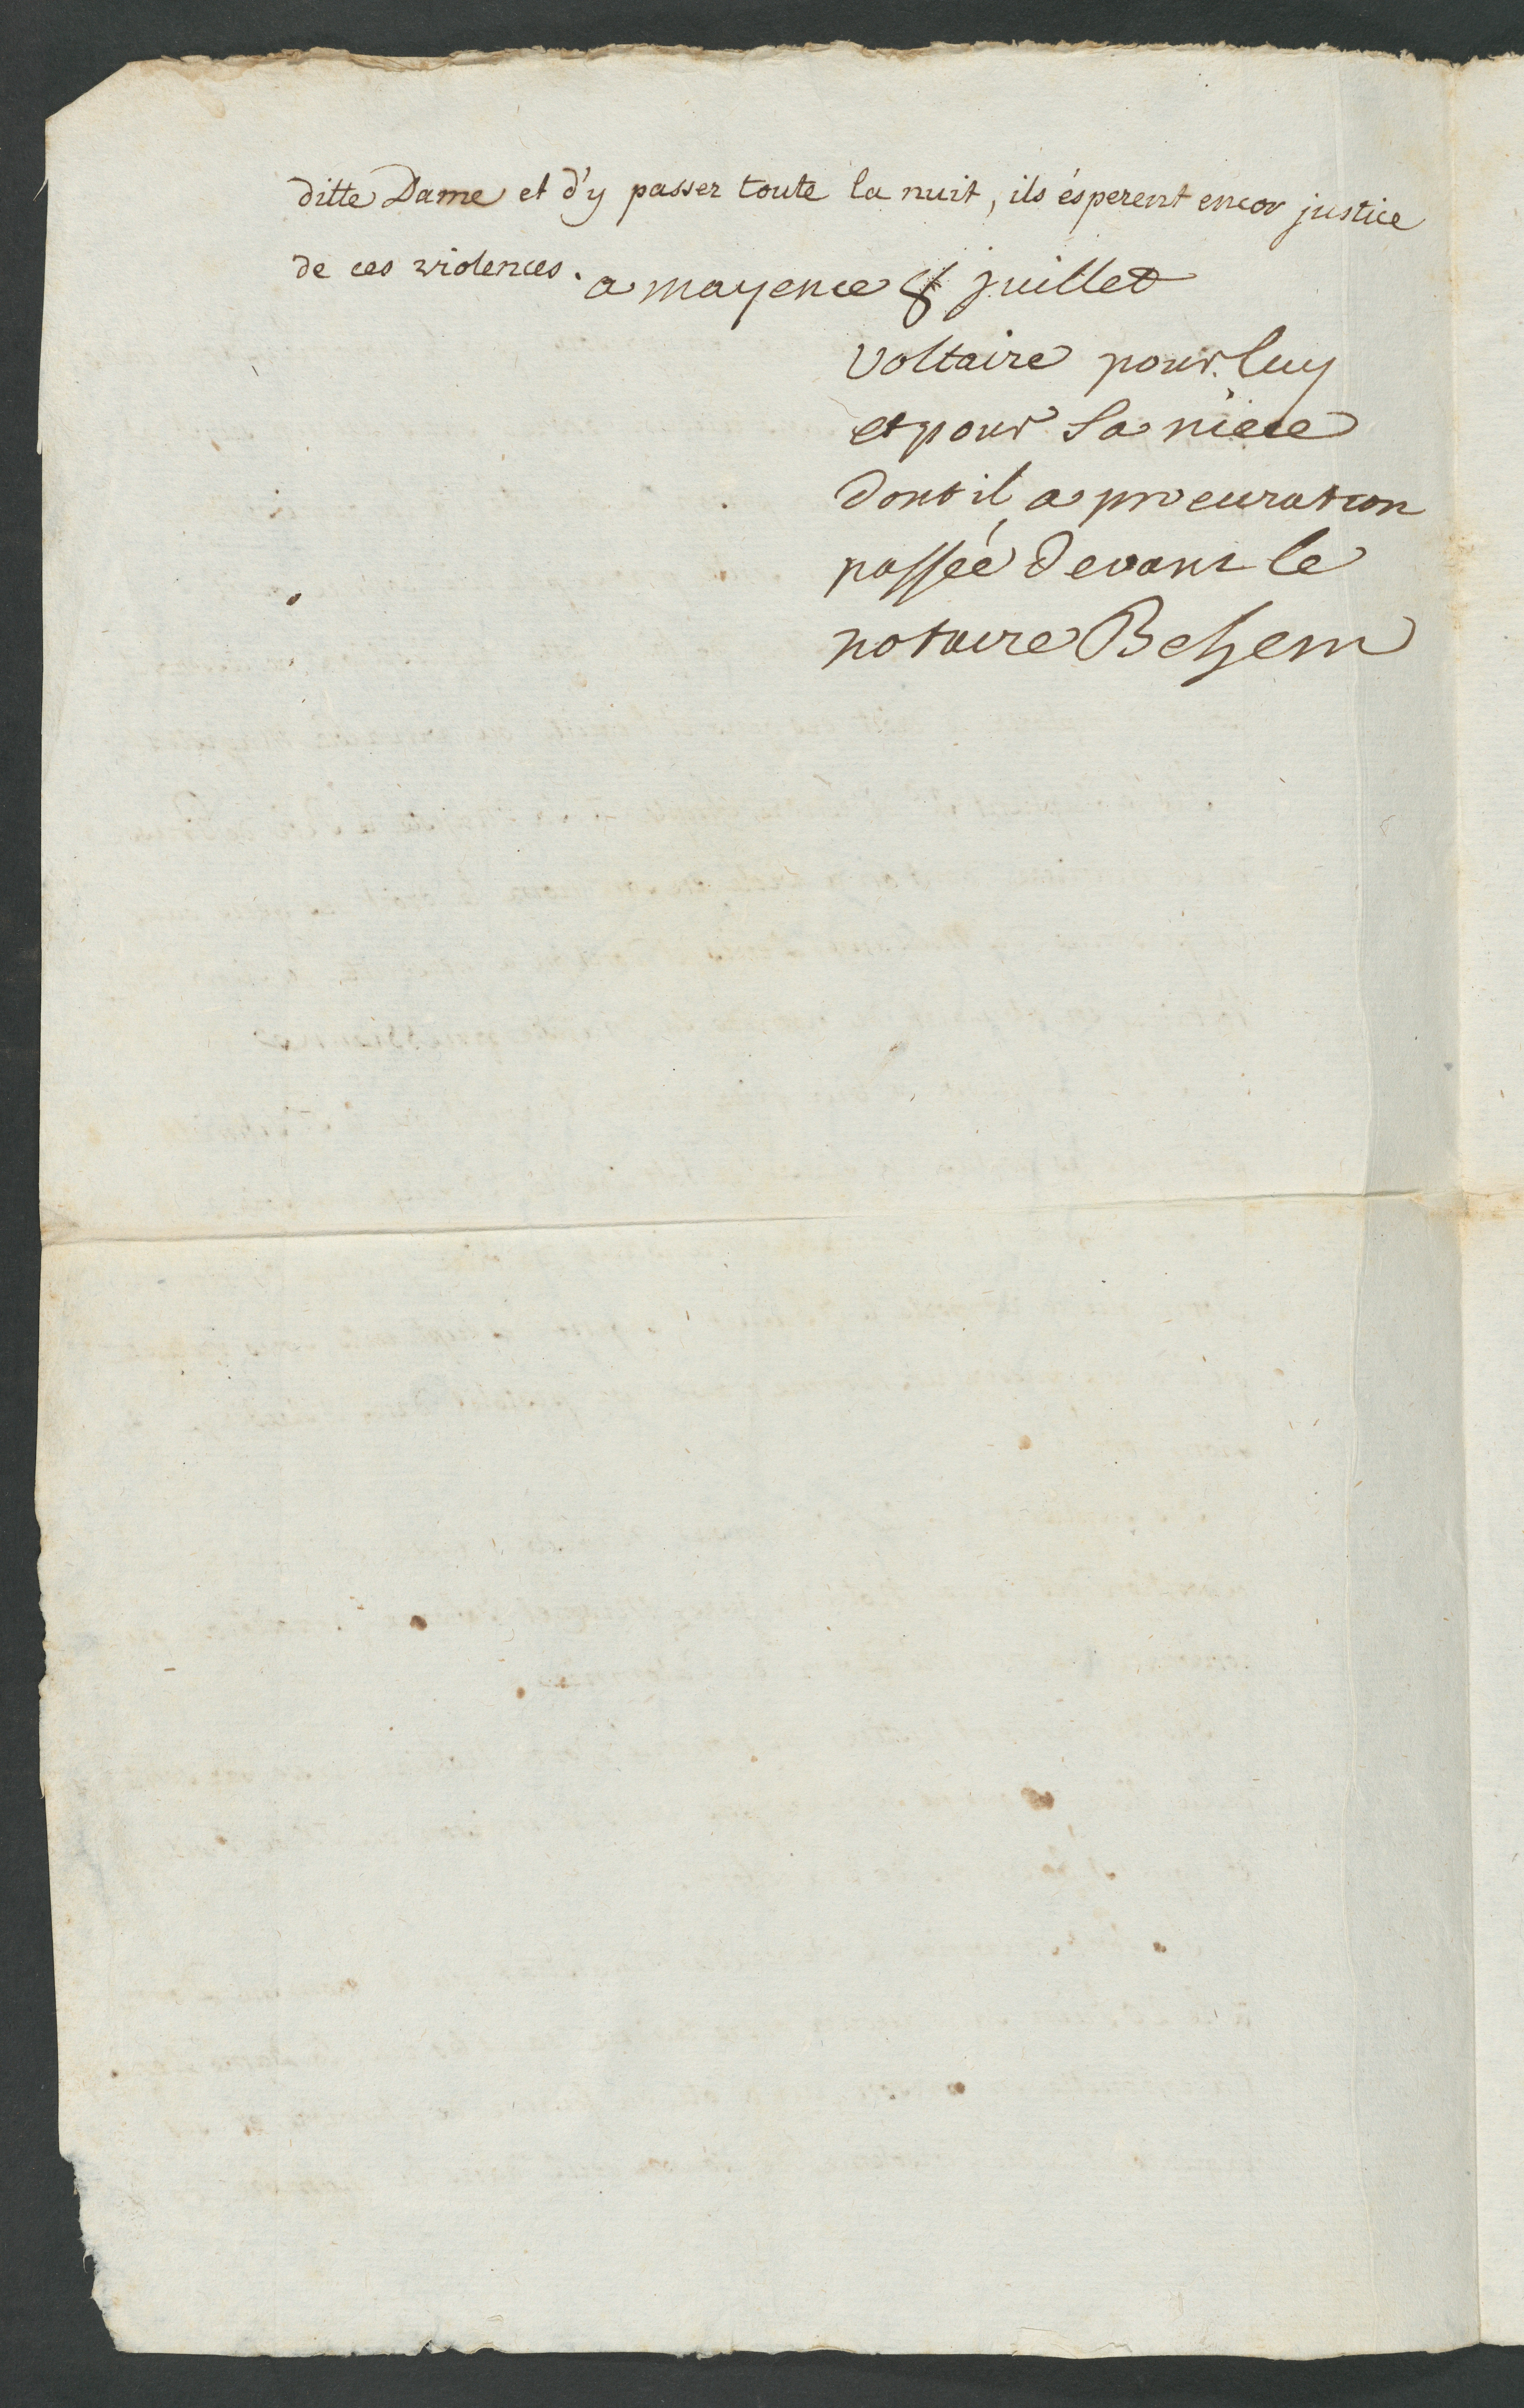 ditte Dame et d'y passer toute la nuit, ils ésperent encor justice
de ces violences. a mayence 8 juillet
Voltaire pour luy
et pour sa niece
dont il a procuration
passée devant le
notaire Behem